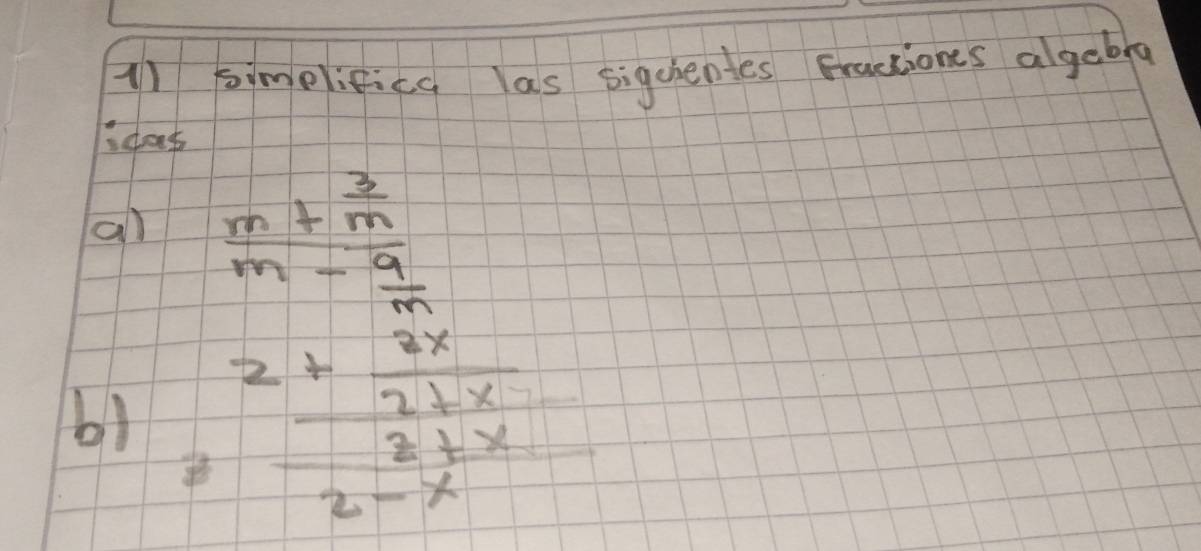 1) simplifica las siguientes fracciones algebra
icas
a) m + 3/m
m - 9/m
b) 2 + 2x
2 + x
2 + x
2 - x